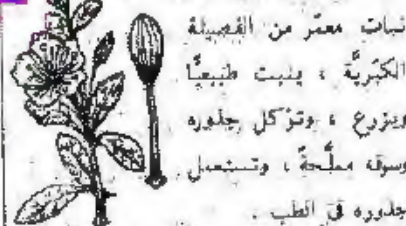 نبات معمّر من الفصيلة
الكَبَريَّة ، ينبت طبيعيًّا
ويزرع ، وتؤكل جذوره
وسوقه مملَّحةً ، وتستعمل
جذوره في الطب .